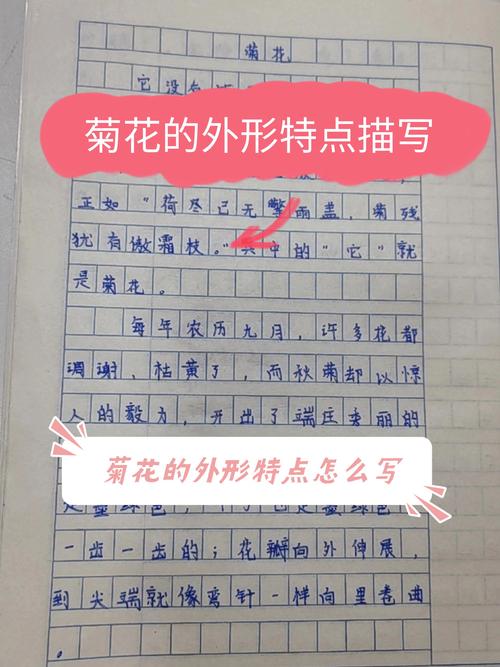 菊花
它没有
菊花的外形特点描写
正如“荷尽已无擎雨盖，菊残
犹有傲霜枝。”其中的“它”就
是菊花。
每年农历九月，许多花都
凋谢、枯黄了，而秋菊却以惊
人的毅力，开出了端庄秀丽的
菊花的外形特点怎么写
是墨绿色，
一齿一齿的；花瓣向外伸展，
到尖端就像弯针一样向里卷曲
。